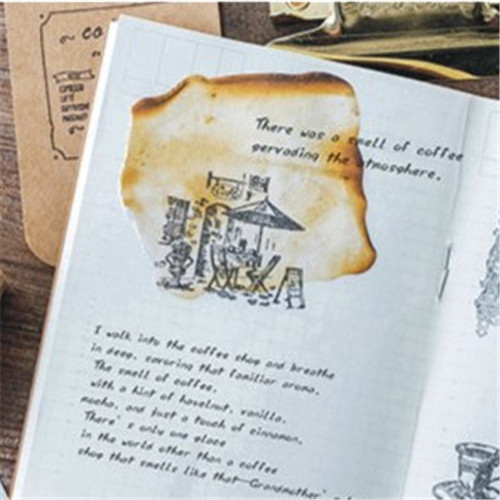 CO
There was a smell of coffee
pervading the atmosphere.
I walk into the coffee shop and breathe
in deep, savoring that familiar aroma.
The smell of coffee,
with a hint of hazelnut, vanilla,
mocha, and just a touch of cinnamon.
There's only one place
in the world other than a coffee
shop that smells like that-Grandmother'